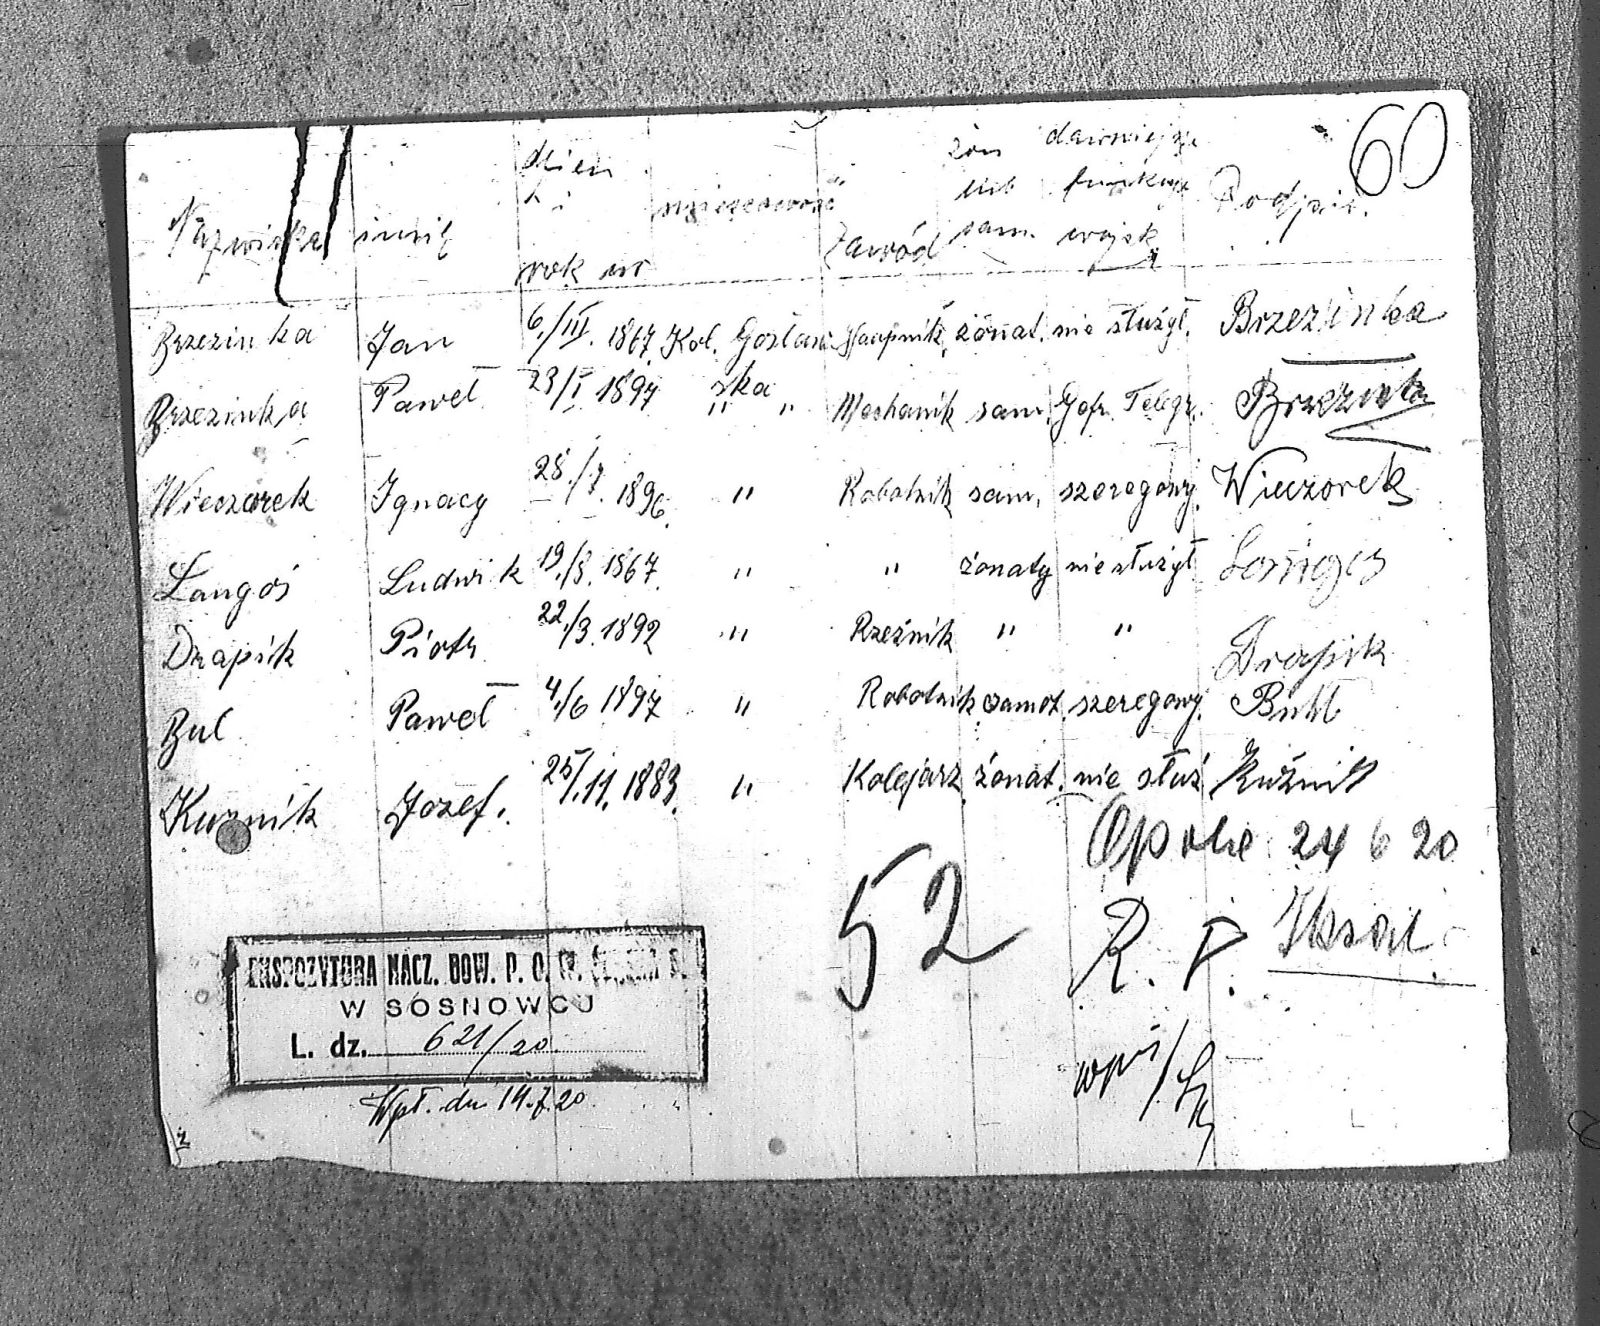 60
dzień żon dawniejsz
i miejscowość lub funkcye Podpis.
Nazwisko imię Zawód sam. wojsk.
rok ur
Brzezinka Jan 6./III. 1867 Kol. Gosław żonat. nie służył. Brzezinka
Brzezinka Paweł 23/I 1897 ska " " Mechanik sam. Gefr. Telegr. Brzezinka
Wieczorek Ignacy 28./7. 1896. " Robotnik sam. szeregowy. Wieczorek
Langoś Ludwik 19./8. 1867. " " żonaty nie służył
Drapik Piotr 22./3. 1892 " Rzeźnik " " Drapik
Bul Paweł 4./6 1897 " Robotnik samot. szeregowy. Bull
Kuznik Jozef. 25/.11. 1883. " Kolejarz żonat. nie służ Kuźnik
Opole 24 6 20
52
R. P.
EKSPOZYTURA NACZ. DOW. P. O. W.
W SOSNOWCU
L. dz. 621/20.
Wpł. dn. 14.7.20